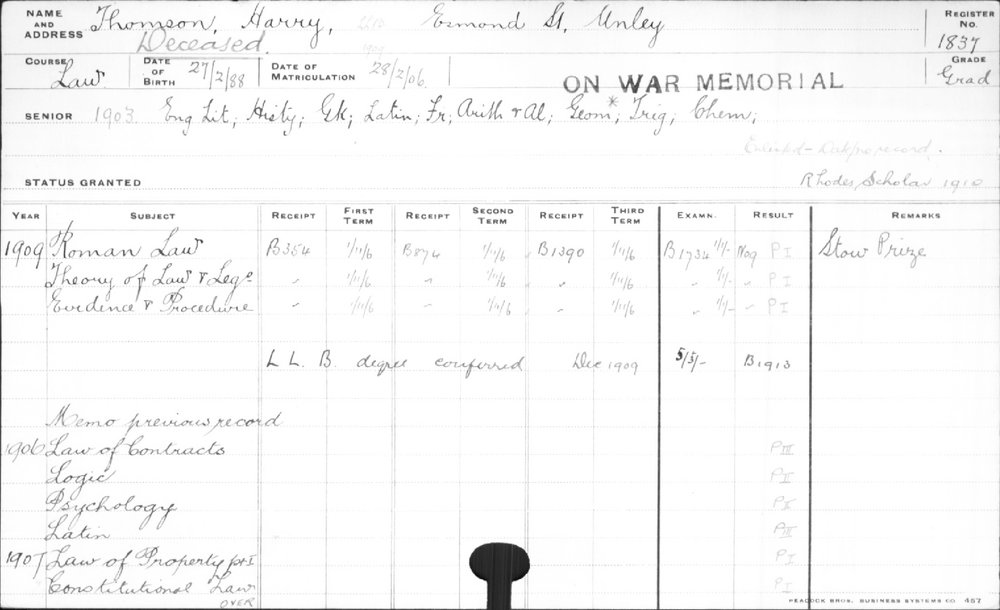 NAME AND ADDRESS Thomson, Harry, Esmond St, Unley REGISTER No. 1837
Deceased.
COURSE Law DATE OF BIRTH 27/2/88 DATE OF MATRICULATION 28/2/06 ON WAR MEMORIAL GRADE Grad
SENIOR 1903 Eng Lit; Histy; Gk; Latin; Fr; Arith & Al; Geom*; Trig; Chem;
record.
STATUS GRANTED Rhodes Scholar 1910
YEAR SUBJECT RECEIPT FIRST TERM RECEIPT SECOND TERM RECEIPT THIRD TERM EXAMN. RESULT REMARKS
1909 Roman Law B354 1/11/6 B874 1/11/6 B1390 1/11/6 B1734 1/1/- Nog P I Stow Prize
Theory of Law & Legn " 1/11/6 " 1/11/6 " 1/11/6 " 1/1/- " P I
Evidence & Procedure " 1/11/6 " 1/11/6 " 1/11/6 " 1/1/- " P I
L L. B. degree conferred Dec 1909 5/5/- B1913
Memo previous record
1906 Law of Contracts P III
Logic P II
Psychology P II
Latin P III
1907 Law of Property pt I P I
Constitutional Law P I
OVER
PEACOCK BROS. BUSINESS SYSTEMS CO 457